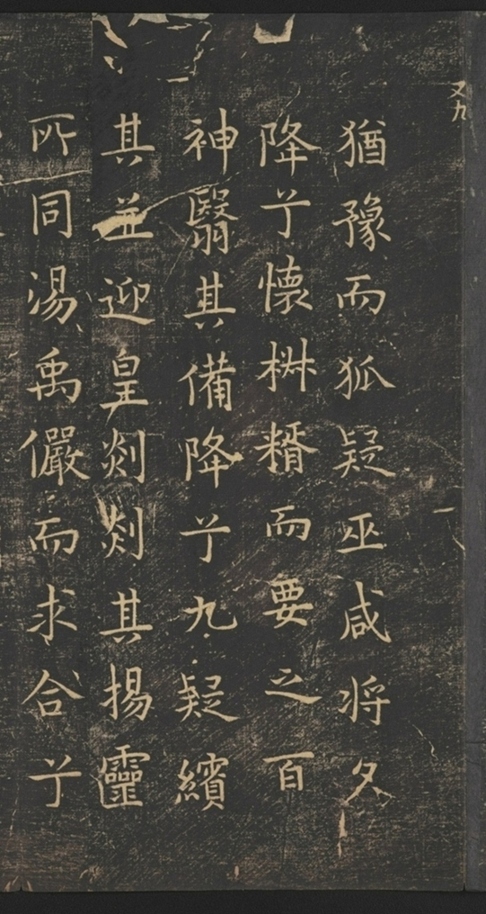 又九
猶豫而狐疑巫咸将夕
降亍懷椒糈而要之百
神翳其備降亍九疑繽
其並迎皇剡剡其揚靈
所同湯禹儼而求合亍